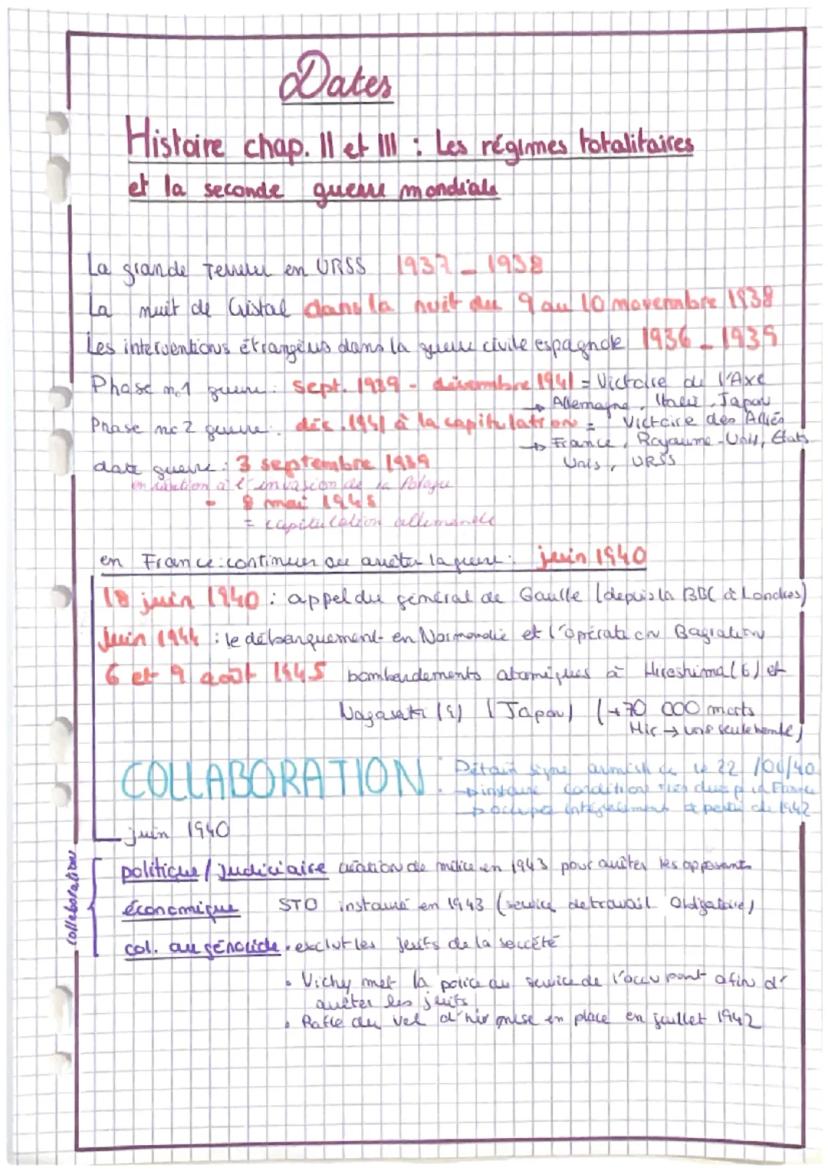 Dates
Histoire chap. II et III : Les régimes totalitaires
et la seconde guerre mondiale
La grande Terreur en URSS 1937 - 1938
La nuit de Cristal dans la nuit du 9 au 10 novembre 1938
Les interventions étrangères dans la guerre civile espagnole 1936 - 1939
Phase n°1 guerre : sept. 1939 - décembre 1941 = Victoire de l'Axe
→ Allemagne, Italie, Japon
Phase n° 2 guerre : déc. 1941 à la capitulation = Victoire des Alliés
→ France, Royaume-Unis, États
Unis, URSS
date guerre : 3 septembre 1939
en réaction à l'invasion de la Pologne
- 8 mai 1945
= capitulation allemande
en France : continuer ou arrêter la guerre : juin 1940
18 juin 1940 : appel du général de Gaulle (depuis la BBC à Londres)
Juin 1944 : le débarquement en Normandie et l'opération Bagration
6 et 9 août 1945 bombardements atomiques à Hiroshima (6) et
Nagasaki (9) (Japon) (→70 000 morts
Hir → une seule bombe)
COLLABORATION : Pétain signe armistice le 22 /06/40
→ instaure condition très dures pr la France
→ occupée intégralement à partir de 1942
juin 1940
collaboration
politique / judiciaire création de milice en 1943 pour arrêter les opposants
économique STO instauré en 1943 (service de travail obligatoire)
col. au génocide • exclut les juifs de la société
• Vichy met la police au service de l'occupant afin d'
arrêter les juifs
• Rafle du vel d'hiv mise en place en juillet 1942